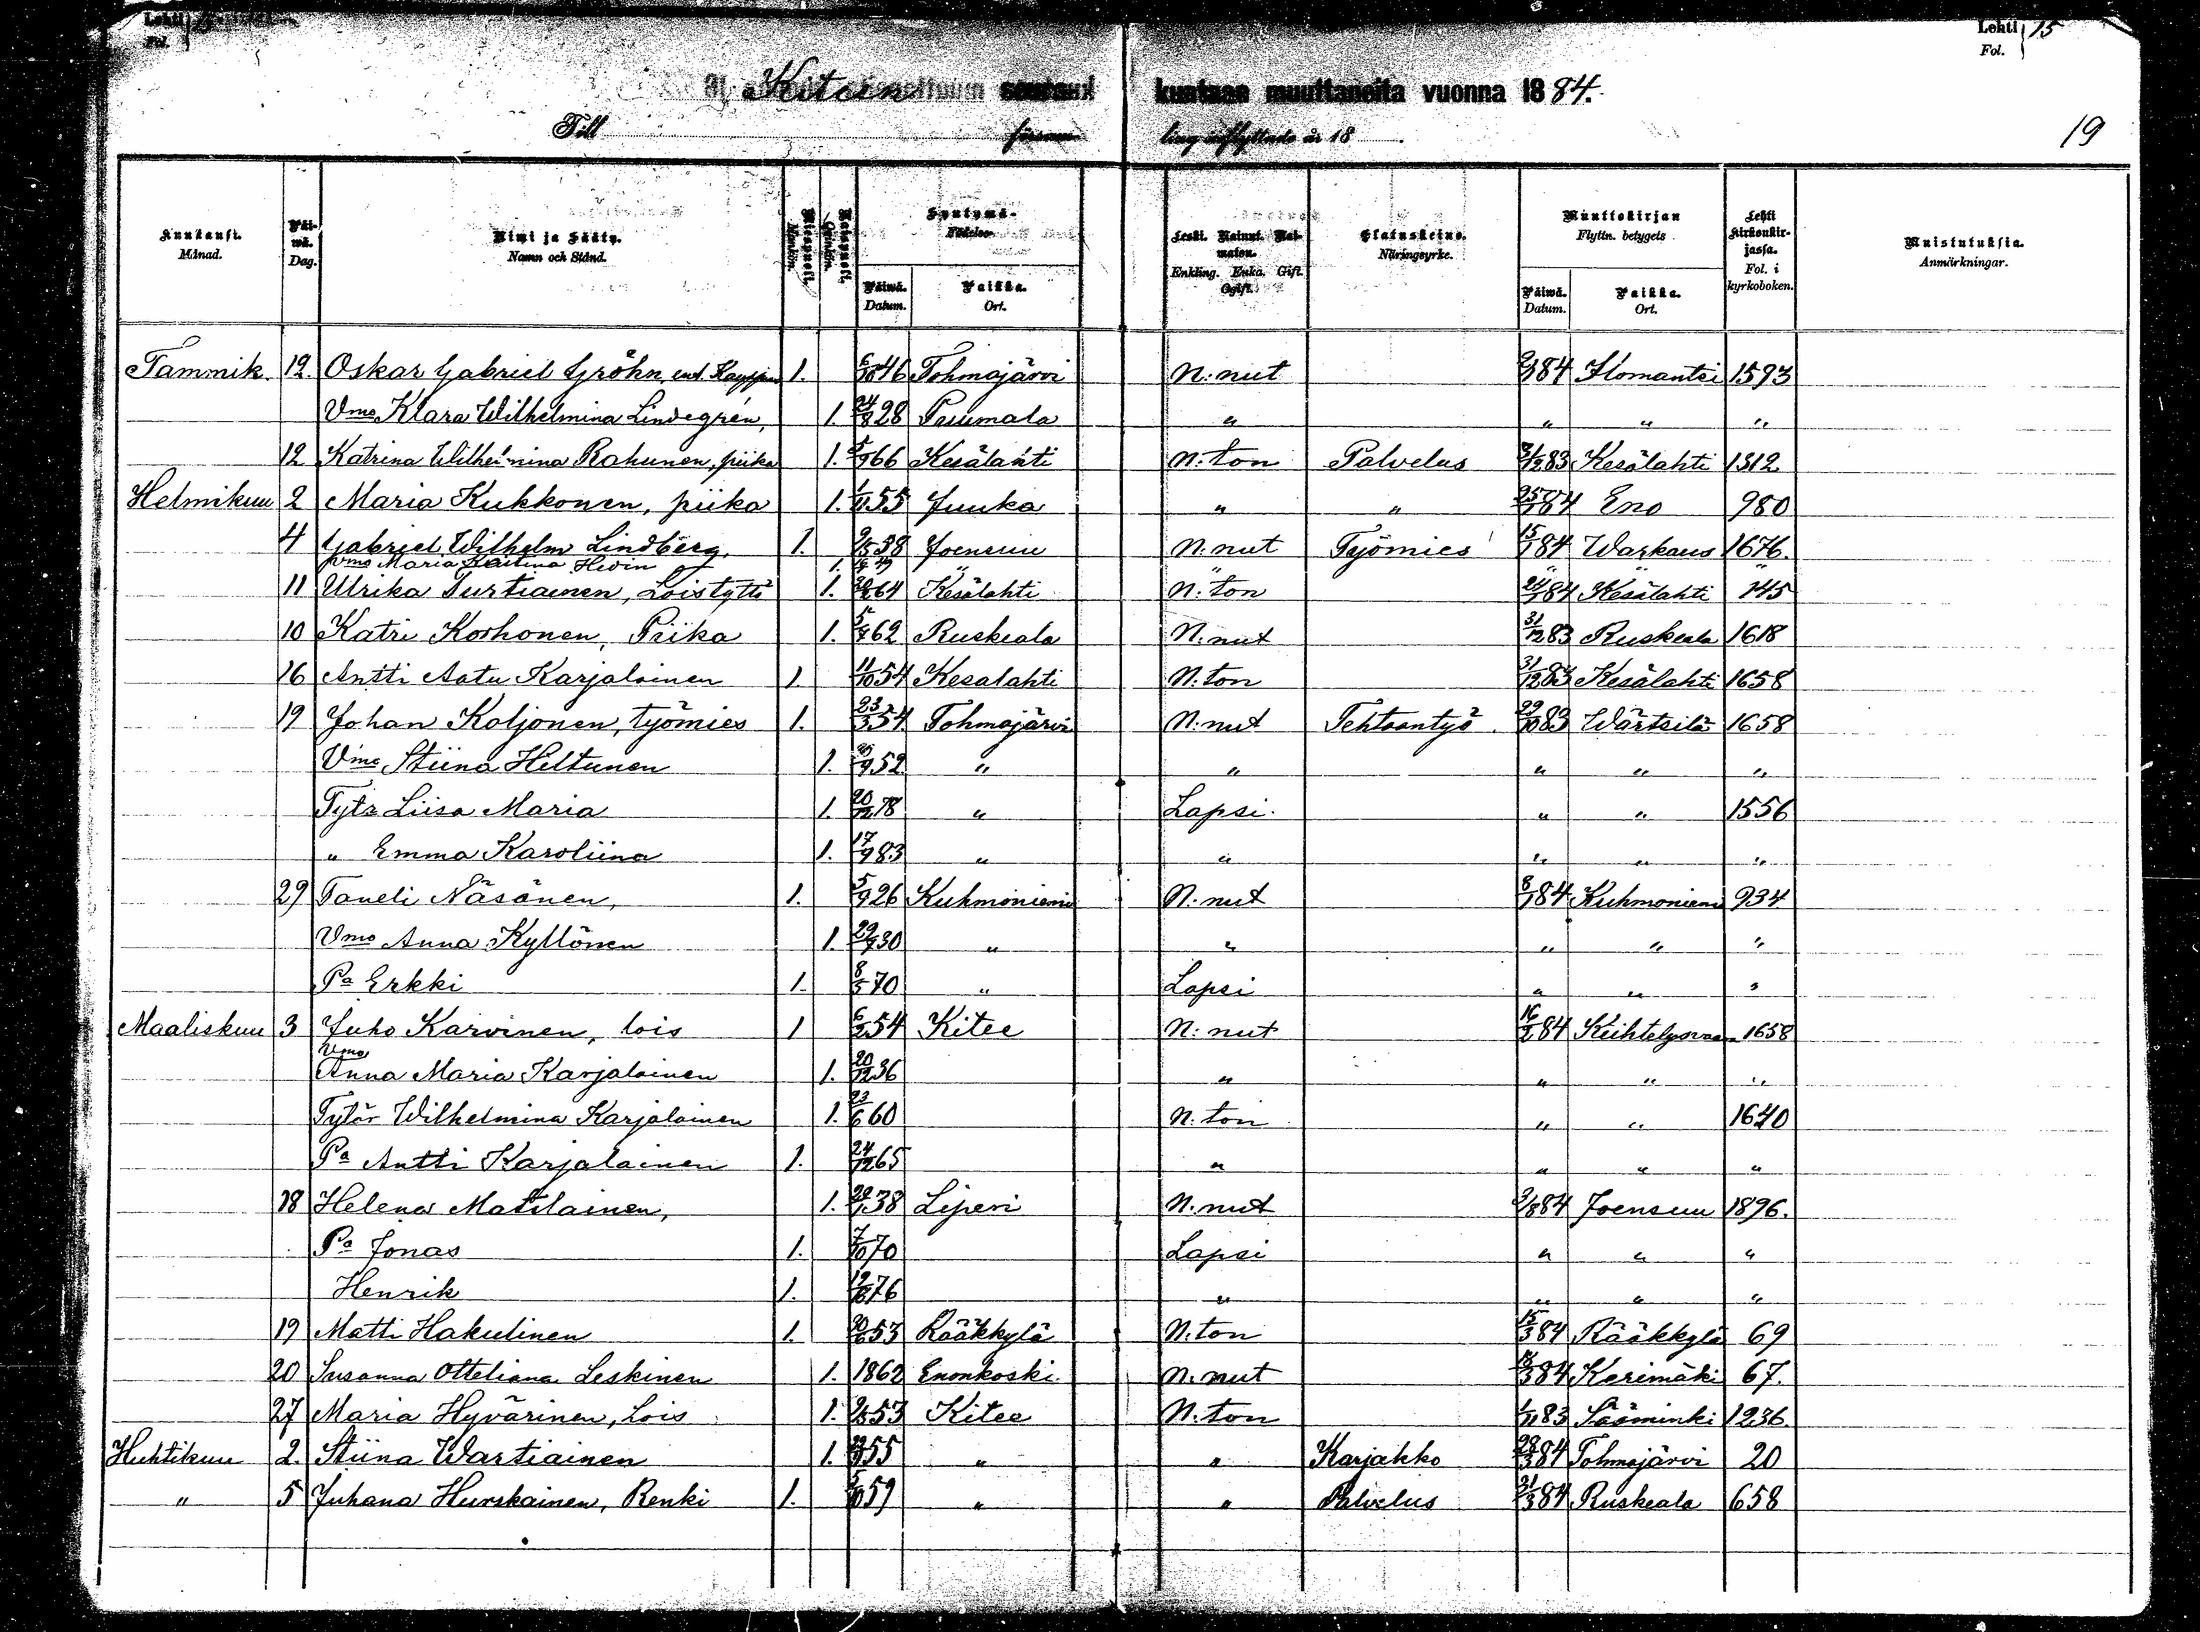 Lehti 15
Fol.
Kiteen seurakuntaan muuttaneita vuonna 1884.
Till församling inflyttade år 18
19
Kuukausi. Månad. Päiwä. Dag. Nimi ja Sääty. Namn och Stånd. Miespuoli. Mankön. Naispuoli. Qvinkön. Syntymä- Födelse- Päiwä. Datum. Paikka. Ort. Leski. Nainut. Naimaton. Enkling. Enka. Gift. Ogift. Elatuskeino. Näringsyrke. Muuttokirjan Flyttn. betygets Päiwä. Datum. Paikka. Ort. Lehti kirkonkirjassa. Fol. i kyrkoboken. Muistutuksia. Anmärkningar.
Tammik. 12. Oskar Gabriel Gröhn, ent. 1. 6/10 46 Tohmajärvi N:nut 84 Ilomantsi 1593
Vmo Klara Wilhelmina Lindegrén, 1. 24/8 28 " " " "
12 Katrina Wilhelmina Rahunen, piika 1. 5/9 66 Kesälahti N:ton Palvelus 83 Kesälahti 1312
Helmikuu 2 Maria Kukkonen, piika 1. 1/11 55 Juuka " " 25/1 84 Eno 980
4 Gabriel Wilhelm Lindberg, 1. 38 Joensuu N:nut Työmies 15/1 84 Warkaus 1676.
Vmo Maria Kristina Hevin 1. 49 " " " "
11 Ulrika Turtiainen, Loistyttö 1. 64 Kesälahti N:ton 24/1 84 Kesälahti 145
10 Katri Korhonen, Piika 1. 62 Ruskeala N:nut 31/12 83 Ruskeala 1618
16 Antti Aatu Karjalainen 1. 11/10 54 Kesalahti N:ton 31/12 83 Kesälahti 1658
19 Johan Koljonen, työmies 1. 23/3 54. Tohmajärvi N:nut Tehtaantyö. 29/10 83 Wärtsilä 1658
Vmo Stiina Heltunen 1. 52 " " " " "
Tytr Liisa Maria 1. 20/12 78 " Lapsi. " " 1556
" Emma Karoliina 1. 17/9 83 " " " " "
29 Taneli Näsänen, 1. 5/9 26 Kuhmoniemi N.nut 8/1 84 Kuhmoniemi 934
Vmo Anna Kyllönen 1. 30 " " " " "
Pa Erkki 1. 8/5 70 " Lapsi " " "
Maaliskuu 3 Juho Karvinen, lois 1 6/2 54 Kitee N:nut 16/2 84 Kiihtelysvaara 1658
Vmo Anna Maria Karjalainen 1. 20/12 36 " " " "
Tytär Wilhelmina Karjalainen 1. 23/6 60 N:ton " " 1640
Pa Antti Karjalainen 1. 24/12 65 " " " "
18 Helena Matilainen, 1. 38 Liperi N:nut 84 Joensuu 1896.
Pa Jonas 1. 7/10 70 Lapsi " " "
Henrik 1. 76 " " " "
19 Matti Hakulinen 1. 53 Rääkkylä N:ton 15/3 84 Rääkkylä 69
20 Susanna Otteliana Leskinen 1. 1862 Enonkoski N.nut 84 Kerimäki 67.
27 Maria Hyvärinen, Lois 1. 53 Kitee N:ton 83 Sääminki 1236
Huhtikuu 2. Stiina Wartiainen 1. 55 " " Karjakko 28/3 84 Tohmajärvi 20
" 5 Juhana Hurskainen, Renki 1. 59 " " Palvelus 31/3 84 Ruskeala 658